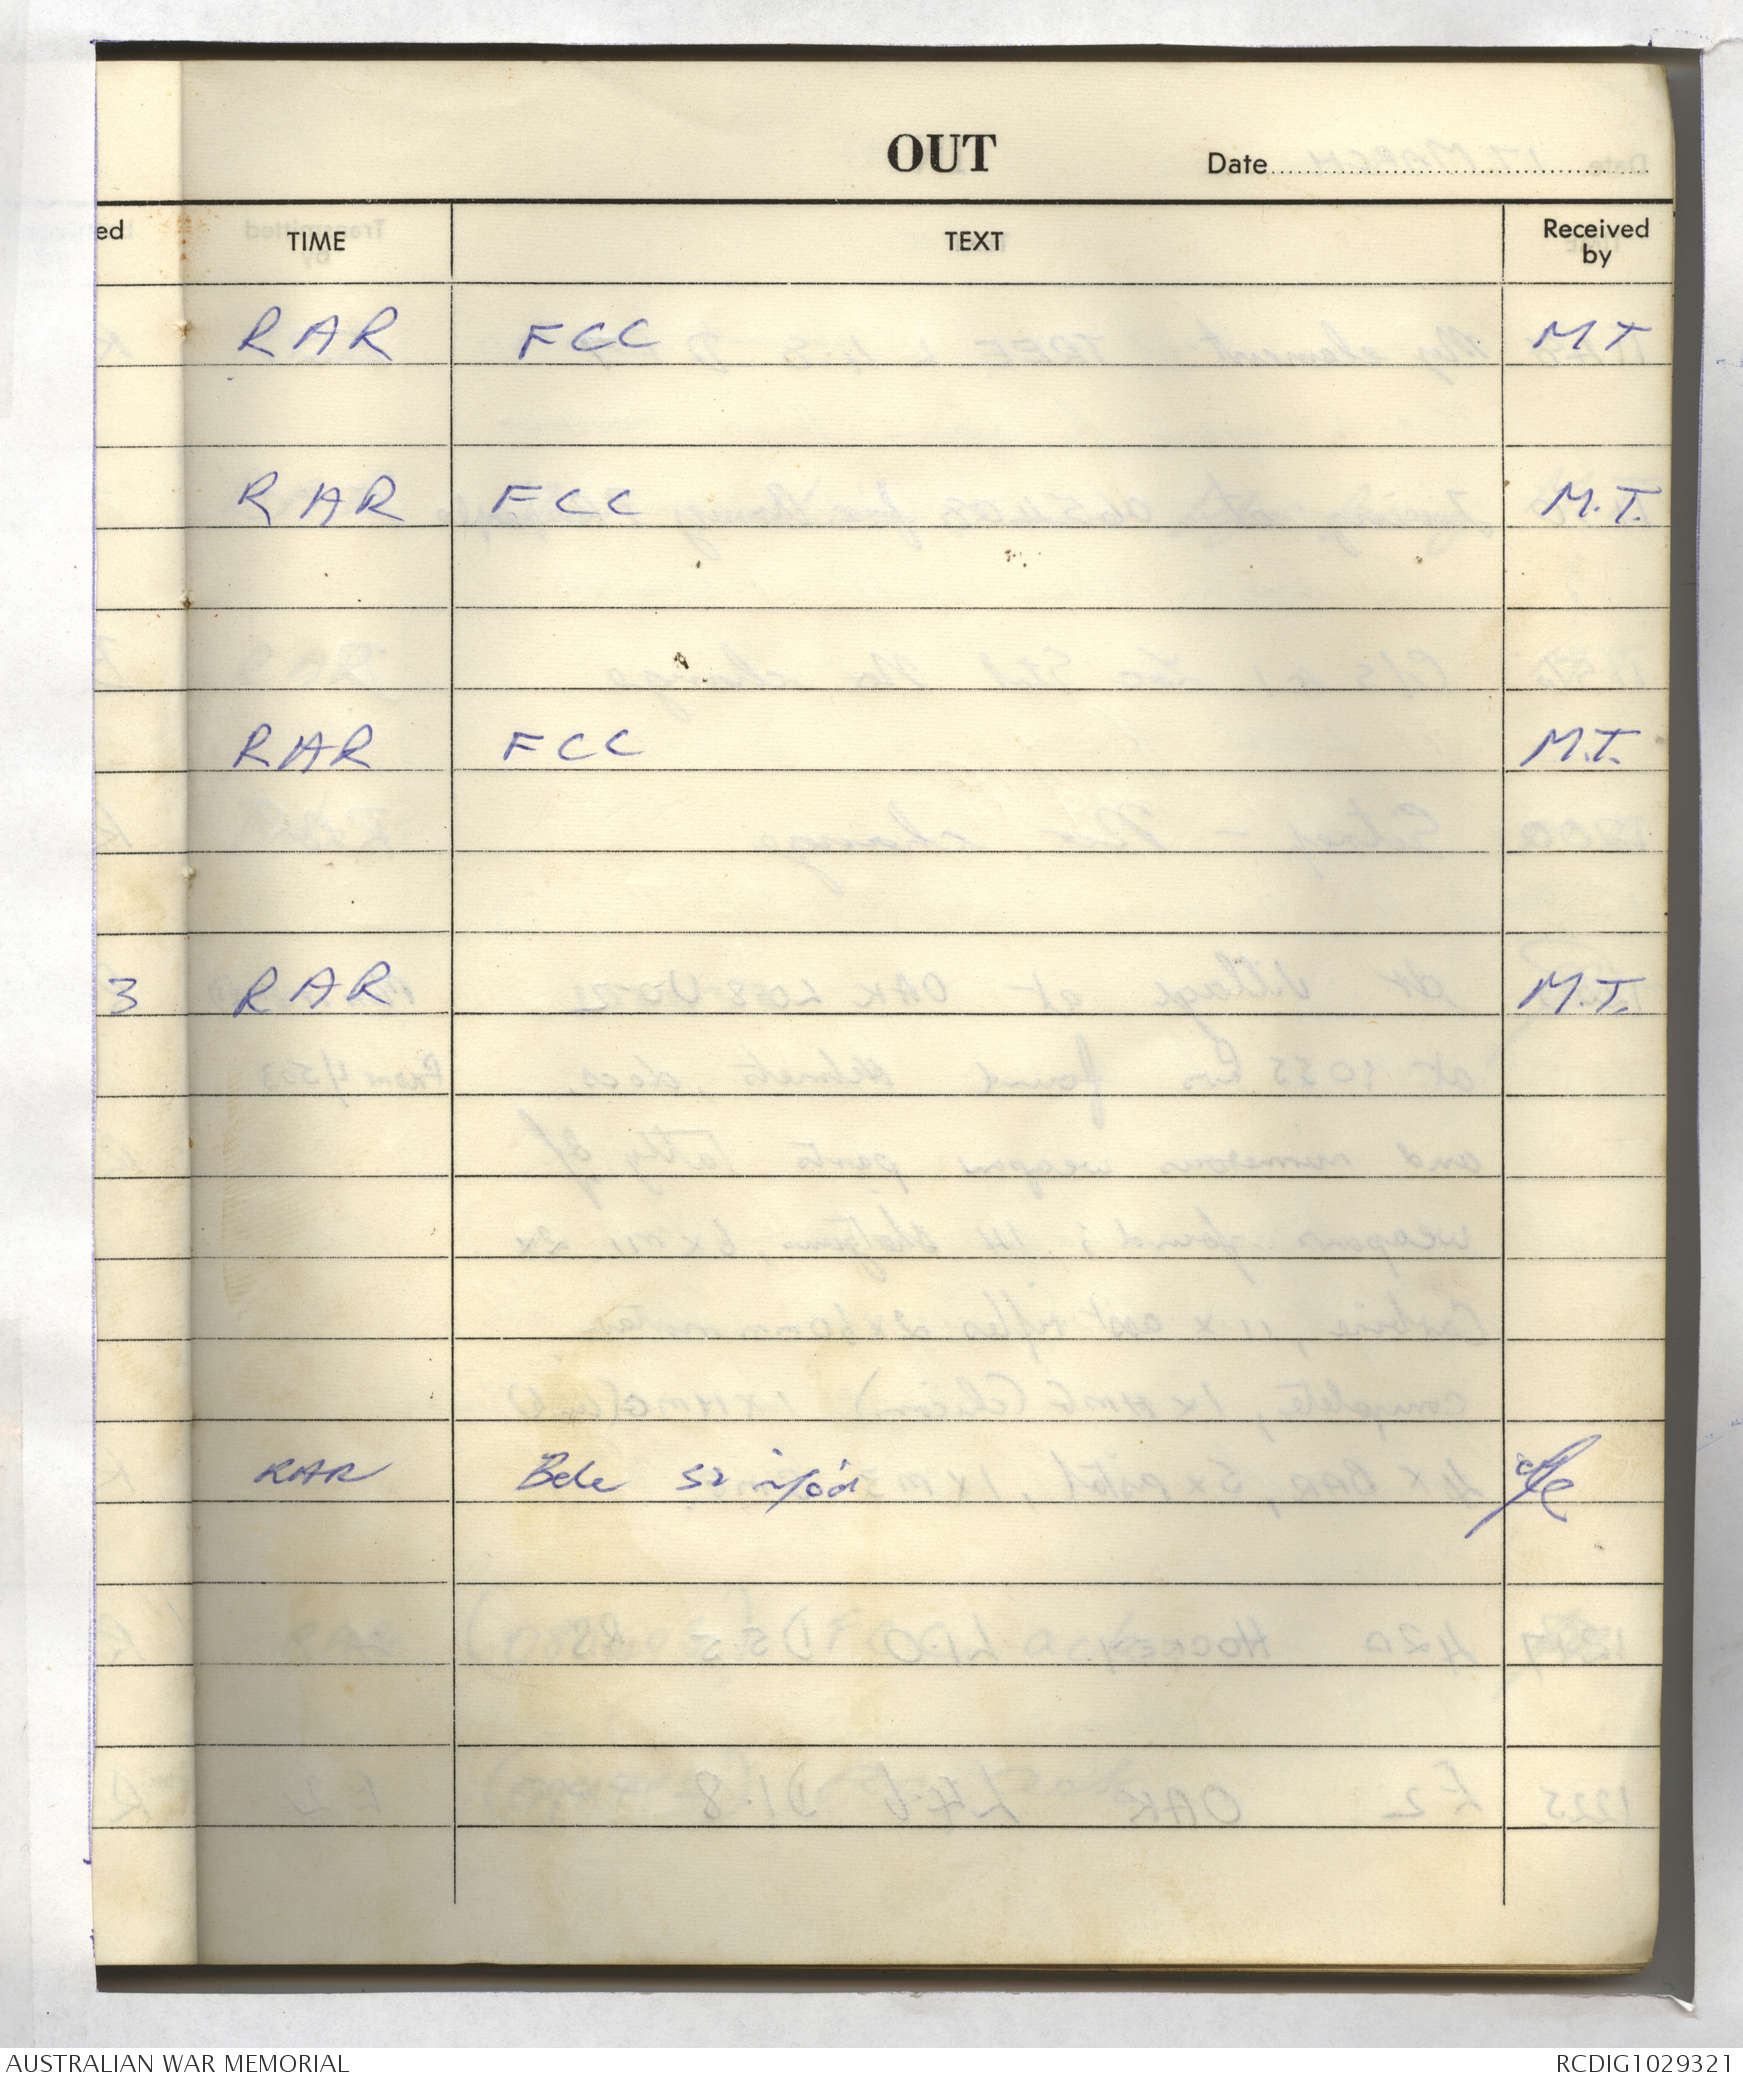 OUT
Date
ed TIME TEXT Received by
RAR FCC M.T
RAR FCC M.T.
RAR FCC M.T.
3 RAR M.T.
RAR
AUSTRALIAN WAR MEMORIAL RCDIG1029321